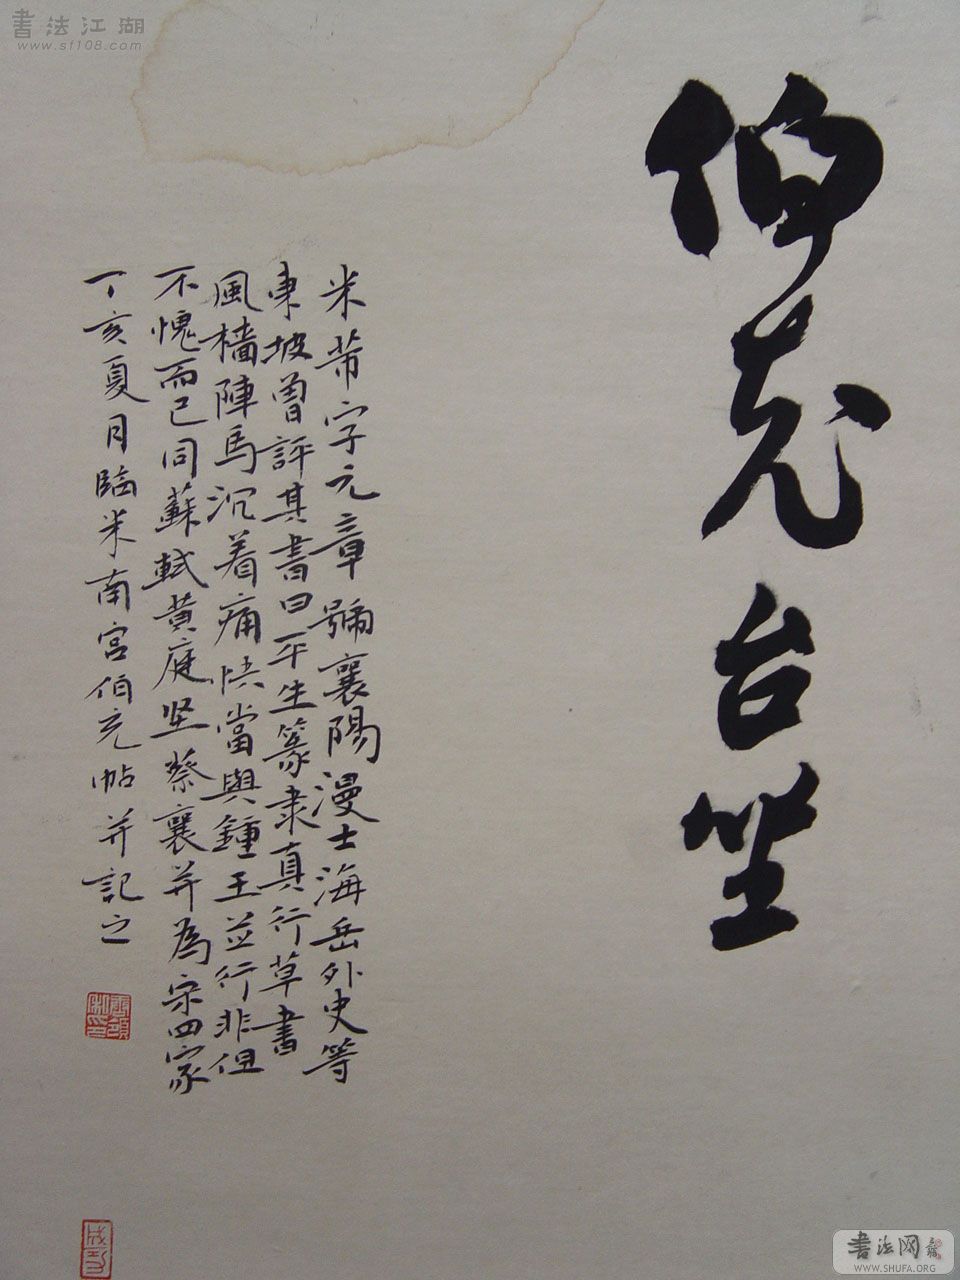 伯充台坐
米芾字元章號襄陽漫士海岳外史等
東坡曾評其書曰平生篆隶真行草書
風檣陣馬沉着痛快當與鍾王並行非但
不愧而已同蘇軾黄庭坚蔡襄并為宋四家
丁亥夏月臨米南宫伯充帖并記之
書法江湖
www.sf108.com
書法网
WWW.SHUFA.ORG